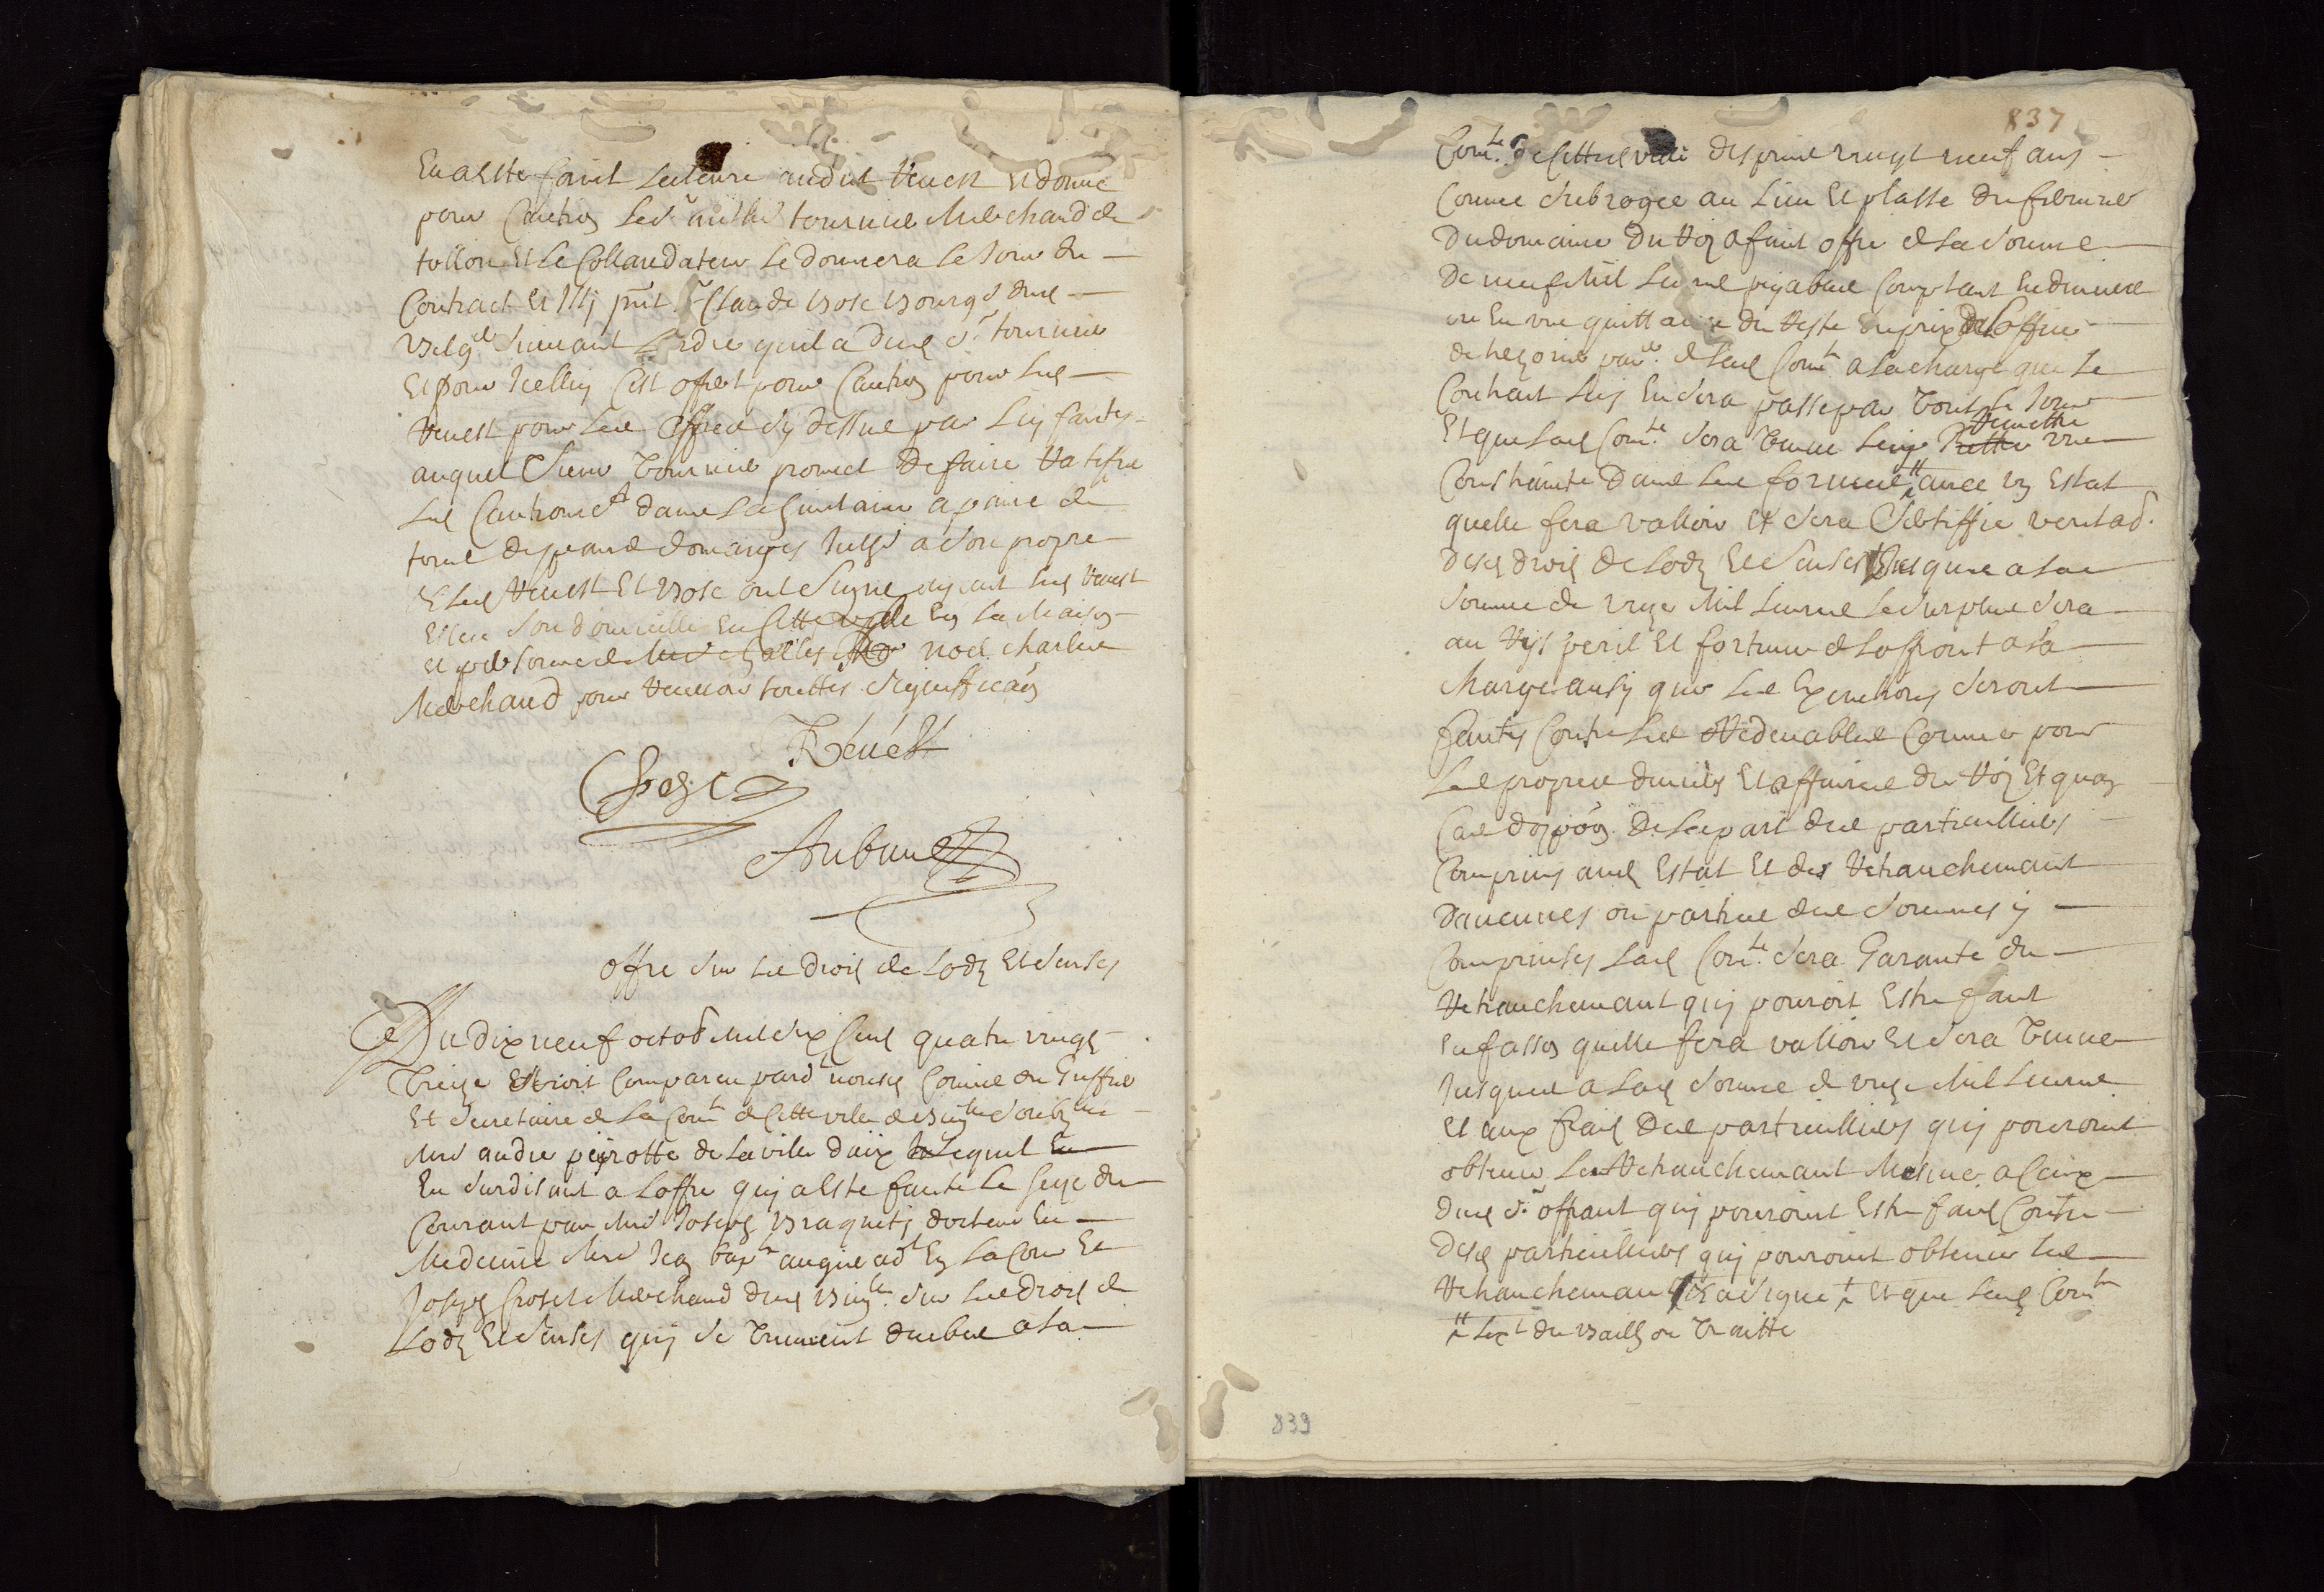 en a este faict lecteure audit Reuest et donne
pour caution led sr anthe tournier marchand de
tollon et le collaudateur le donnera le jour du
contract et illy pnt sr Claude bosc bourgs dud
suiuant lordre quil a dud sr tournier
et pour icelluy cest offert pour caution pour led
Reuest pour les offres cy dessus par luy faites
auquel sieur tournier promet de faire ratifier
led cautionemt dans la huictaine a paine de
tous despans domaiges intest a son propre
et led Reuest et bosc ont signe ayant led Reuest
esleu son domicille en cette ville en la maison
et personne de noel charles
marchand pour receuoir touttes significaons
Reuest
bosc
Aubane
offre sur les drois de lodz et venses
Du dix neuf octob mil six cens quatre vingt
treize est comparu pard nous commis du greffier
et secretaire de la comte de cette ville de
me andre peyrotte de la ville daix lequel
en surdisant a loffre quy a este faite le seize du
courant par me Joseph braquety docteur en
medecine me Jean bapte augier adt en la cour et
Joseph croset marchand dud sur les drois de
lodz et venses quy se treuuent deubs a la
837
comte de cette ville despuis vingt neuf ans
comme subrogee au lieu et plasse du fermier
du domaine du Roy a fait offre de la somme
de neuf mil liures payables comptant en deniers
ou en vne quittance du reste du prix de loffice
de par de lad comte a la charge que le
contract luy en sera passe par tout le jour
et que lad comte sera tenue luy remettre vne
dans les formes auec vn estat
quelle fera valloir et sera certiffie veritab
desd drois de lodz et venses jusques a la
somme de vnze mil liures le surplus sera
au risq peril et fortune de loffrant a la
charge ausy que les executions seront
faites contre les redeuables comme pour
les propres deniers et affaires du Roy et quen
cas doppon de la part des particulliers
comprins aud estat et des retranchemant
daucunes ou parties des sommes y
comprinses lad comte sera garante du
retranchemant quy pouroit estre fait
en fasson quelle fera valloir et sera tenue
jusques a lad somme de vnze mil liures
et aux frais des particulliers quy pouroint
obtenir les retranchemant mesme a ceux
dud sr offrant quy pouroint estre fais contre
desd particulliers quy pouroint obtenir les
retranchemans et a signe et que lad comte
du bail ou traitte
839